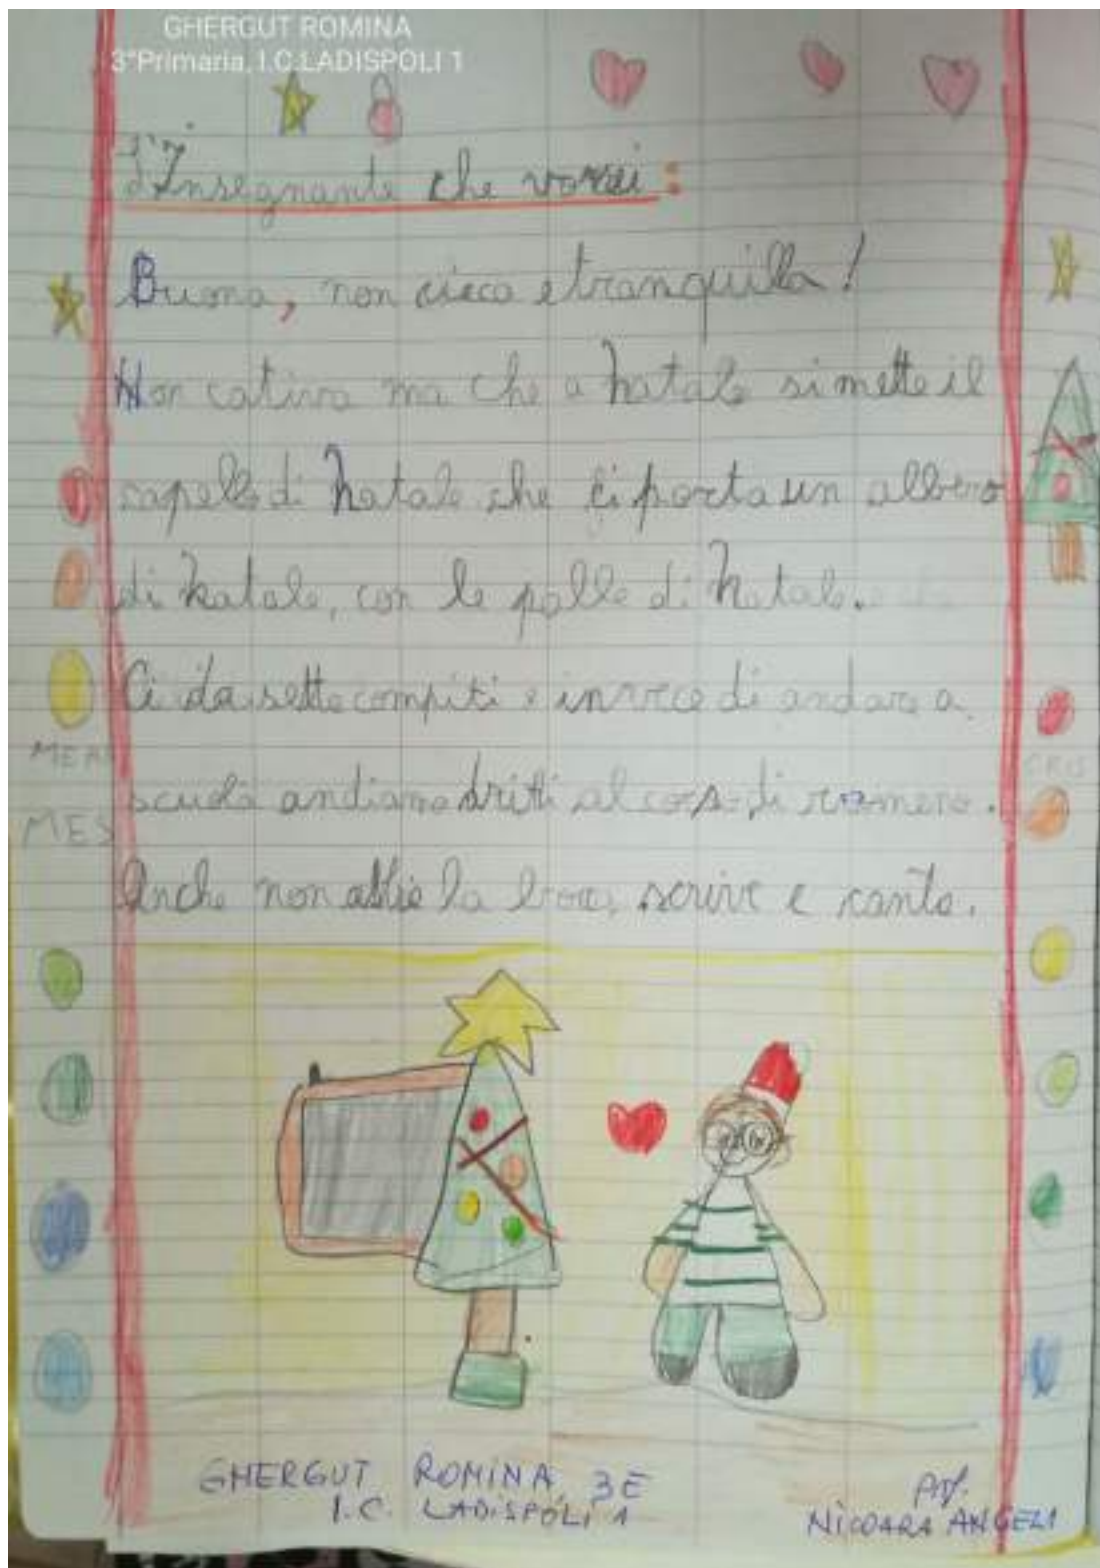 GHERGUT ROMINA
3°Primaria, I.C.LADISPOLI 1
L'Insegnante che vorrei :
Buona, non cieca e tranquilla !
Non cativa ma che a Natale si mette il
capello di Natale che ci porta un albero
di Natale, con le palle di Natale.
Ci da sette compiti e invece di andare a
scuola andiamo driti al corso di romeno.
Anche non la scrive e canta.
MES
GHERGUT ROMINA 3E
I.C. LADISPOLI 1
Prof.
NICOARA ANGELI